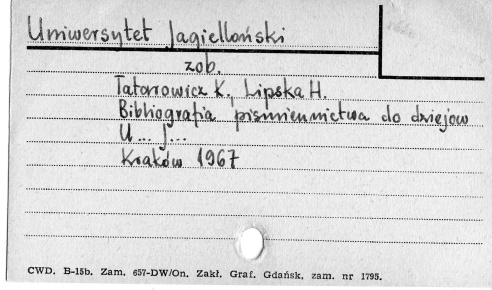 Uniwersytet Jagielloński
zob.
Tatarowicz K., Lipska H.
Bibliografia piśmiennictwa do dziejów
U... J...
Kraków 1967
CWD. B-15b. Zam. 657-DW/On. Zakł. Graf. Gdańsk, zam. nr 1795.